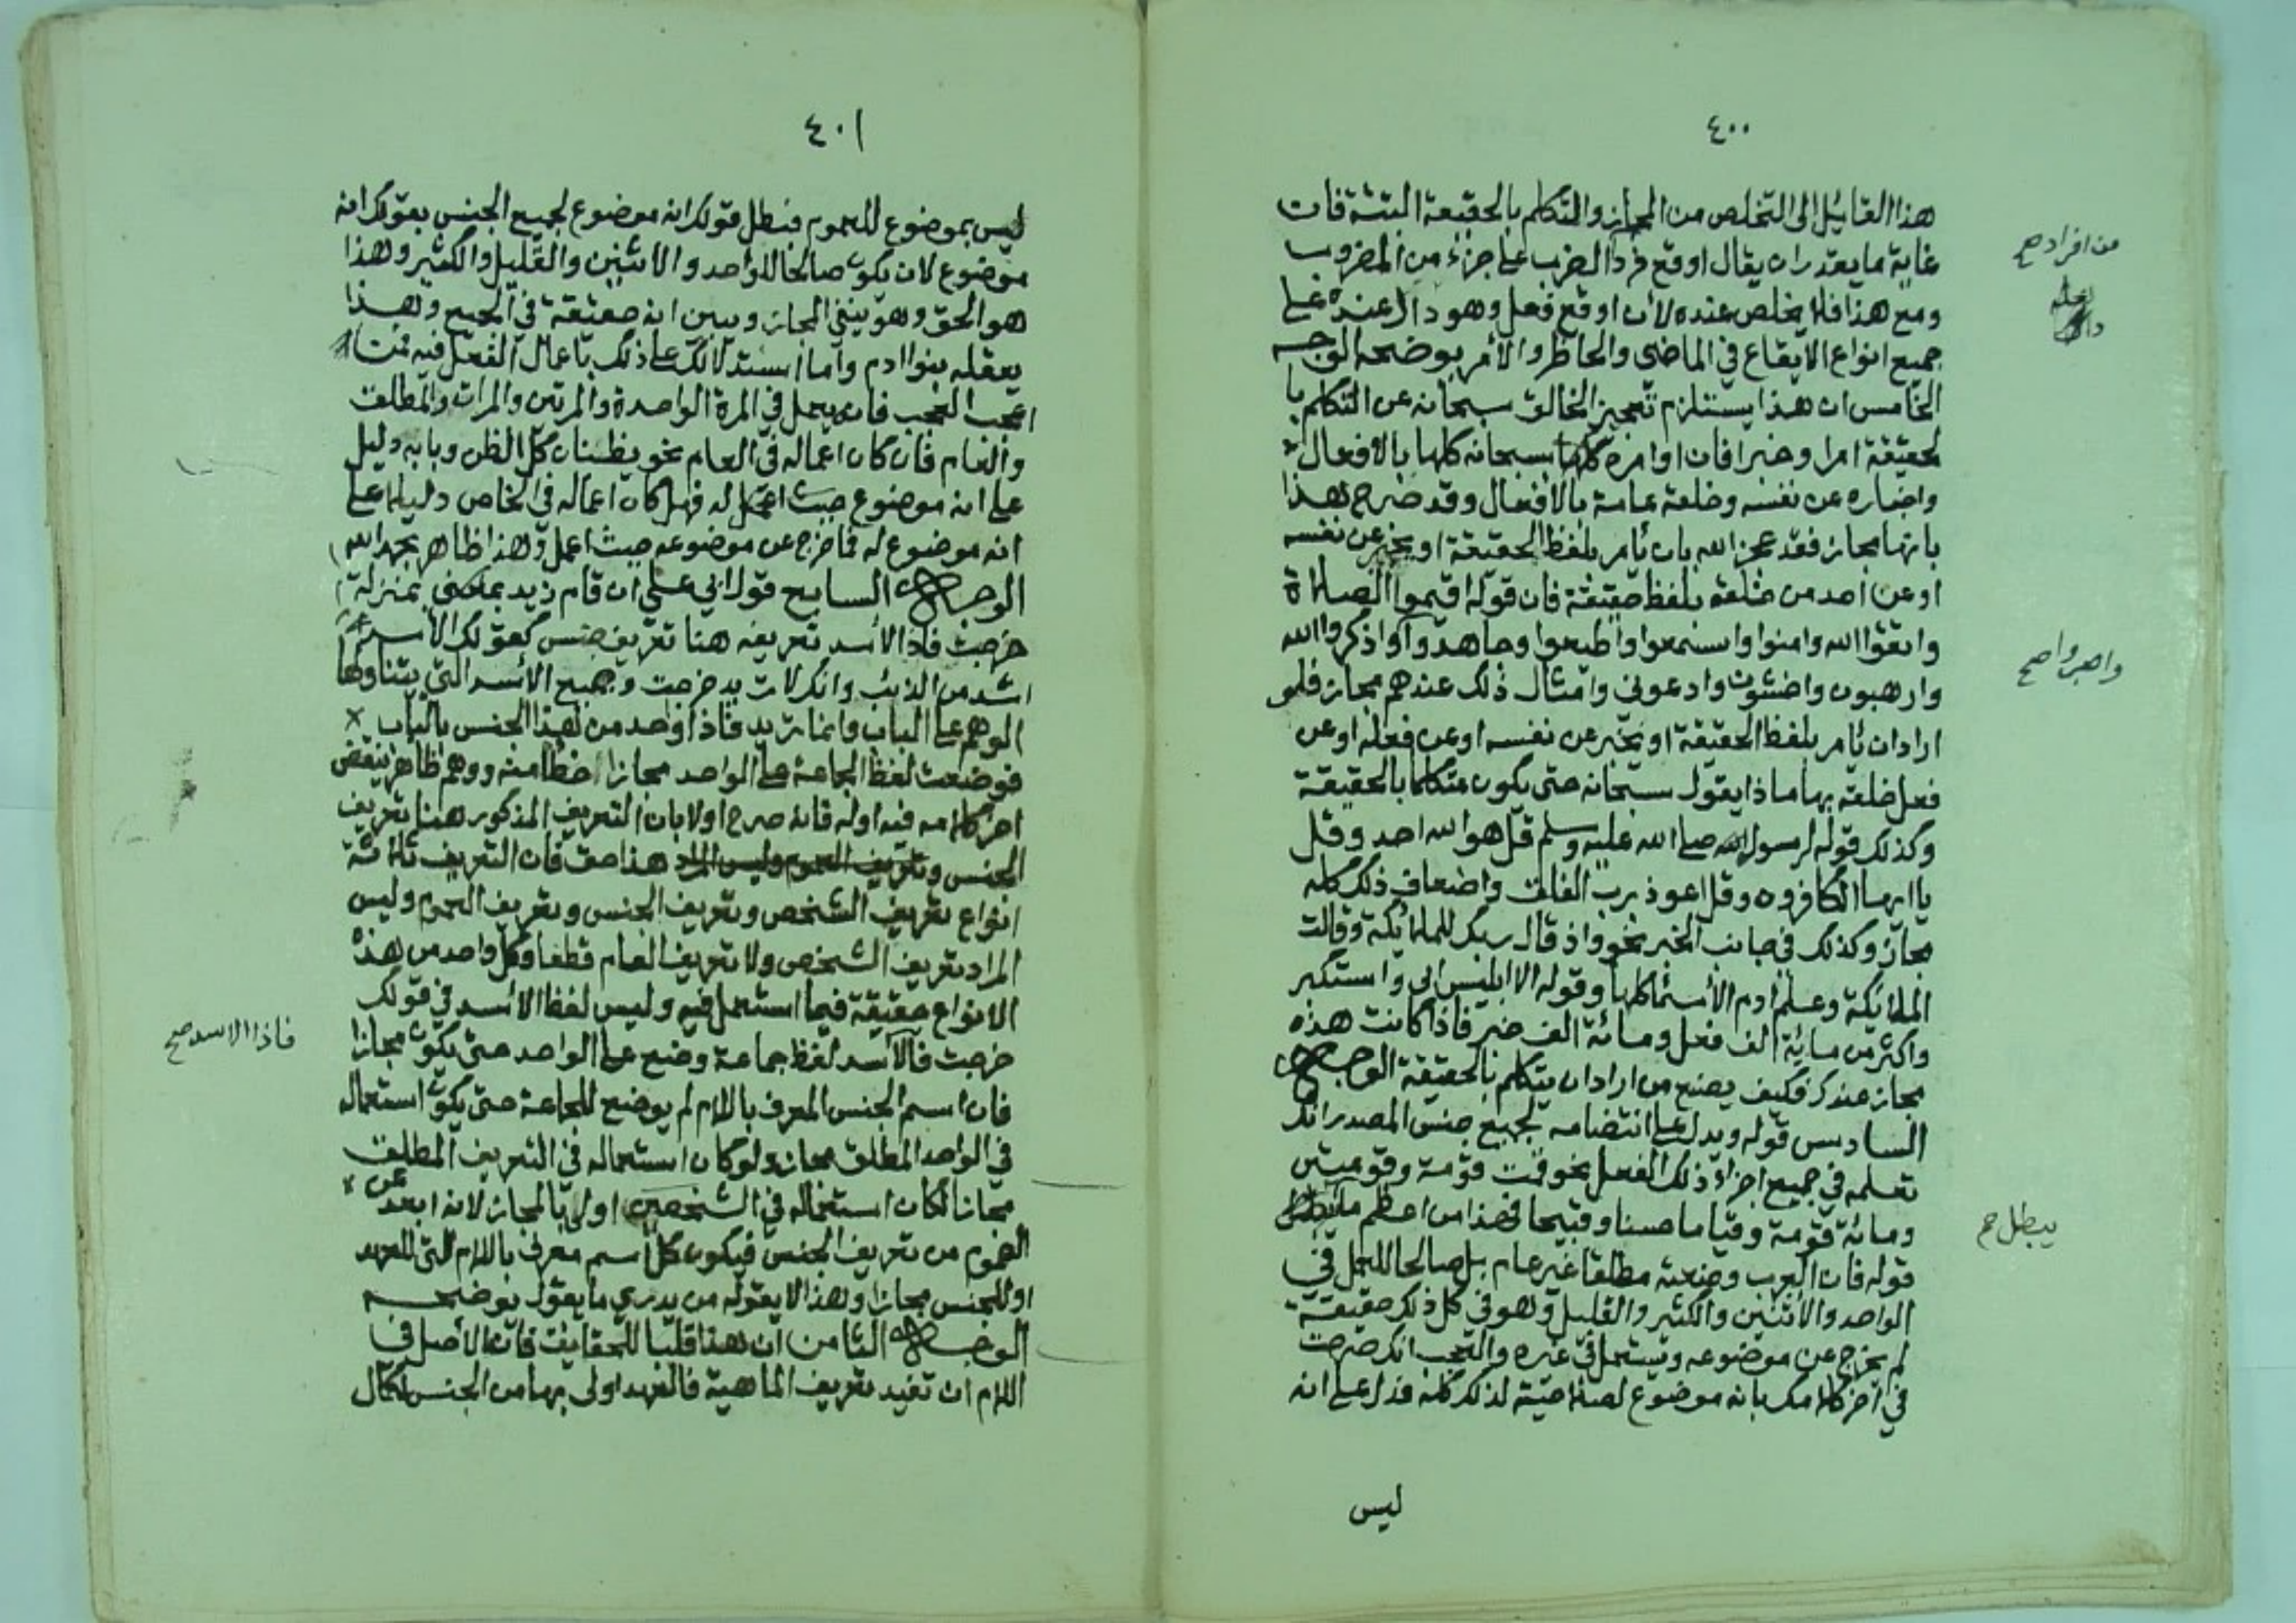 ٤٠٠
هذا القائل الى التخلص من المجاز والتكلم بالحقيقة البتة فان
غاية ما يقدر ان يقال اوقع فردا لضرب على جزء من المضروب
من افراده صح
ومع هذا فلا يخلص عنده لأن اوقع فعل وهو دال عنده على
جميع انواع الايقاع في الماضي والحاظر والأمر يوضحه الوجه
الخامس ان هذا يستلزم تعجيز الخالق سبحانه عن التكلم با
لحقيقة امرا وخبرا فان اوامره سبحانه كلها بالافعال
واخباره عن نفسه وخلقه عامة بالافعال وقد صرح هذا
بانها مجاز فقد عجز الله بان يأمر بلفظ الحقيقة او يخبر عن نفسه
او عن احد من خلقه بلفظ حقيقة فان قوله اقيموا الصلاة
واتقوا الله وامنوا واسمعوا واطيعوا وجاهدوا واذكروا الله
واصبروا صح
وارهبون واخشون وادعوني وامثال ذلك عندهم مجاز فلو
اراد ان يأمر بلفظ الحقيقة او يخبر عن نفسه او عن فعله او عن
فعل خلقه بها ماذا يقول سبحانه حتى يكون متكلما بالحقيقة
وكذلك قوله لرسول الله صلى الله عليه وسلم قل هو الله احد وقل
يا ايها الكافرون وقل اعوذ برب الفلق واضعاف ذلك كله
مجاز وكذلك في جانب الخبر نحو واذ قال ربك للملائكة وقالت
الملائكة وعلم ادم الأسماء كلها وقوله الا ابليس ابى واستكبر
واكثر من مائة الف فعل ومائة الف خبر فاذا كانت هذه
مجاز عندكم فكيف يصنع من اراد ان يتكلم بالحقيقة الوجه
السادس قوله ويدل على انتضامه لجميع جنس المصدر انك
تعلمه في جميع اجزاء ذلك الفعل نحو قمت قومة وقومتين
ومائة قومة وقياما حسنا وقبيحا فهذا من اعظم ما
يبطل صح
قوله فان العرب وضعته مطلقا غير عام بل صالحا للعمل في
الواحد والاثنين والكثير والقليل وهو في كل ذلك حقيقة
لم يخرج عن موضوعه ويستعمل في غيره والعجب انك صرحت
في آخر كلامك بانه موضوع لصلاحية لذلك كله فدل على انه
ليس
٤٠١
ليس بموضوع للعموم فبطل قولك انه موضوع لجميع الجنس بقولك انه
موضوع لان يكون صالحا للواحد والاثنين والقليل والكثير وهذا
هو الحق وهو ينفي المجاز ويبين انه حقيقة في الجميع وهذا
يعقله بنوا ادم واما استدلالك على ذلك باعمال الفعل فيه فمن
اعجب العجب فانه يعمل في المرة الواحدة والمرتين والمرات والمطلق
والعام فان كان اعماله في العام نحو يظنان كل الظن وبابه دليل
على انه موضوع حيث اعمل له فهل كان اعماله في الخاص دليلا على
انه موضوع له فما خرج عن موضوعه حيث اعمل وهذا ظاهر بحمد الله
الوجه السابع قوله ابي علي ان قام زيد بمعنى بمنزلة
خرجت فاذا الأسد تعريفه هنا تعريف جنس كقولك الأسد
اشد من الذئب وانك لا تريد خرجت وجميع الأسد التي يتناولها
الوهم على الباب وانما تريد فاذا واحد من هذا الجنس بالباب
فوضعت لفظ الجماعة على الواحد مجازا خطأ منه ووهم ظاهر ينقض
اخر كلامه فيه اوله فانه صرح اولا بان التعريف المذكور هنا تعريف
الجنس هذا حق فان التعريف ثلاثة
انواع تعريف الشخص وتعريف الجنس وتعريف العموم وليس
المراد تعريف الشخص ولا تعريف العام قطعا وكل واحد من هذه
الانواع حقيقة فيما استعمل فيه وليس لفظ الأسد في قولك
فاذا الاسد صح
خرجت فالأسد لفظ جماعة وضع على الواحد حتى يكون مجازا
فان اسم الجنس المعرف باللام لم يوضع للجماعة حتى يكون استعماله
في الواحد المطلق مجاز ولو كان استعماله في التعريف المطلق
مجازا لكان استعماله في الشخص اولى بالمجاز لانه ابعد عن
العموم من تعريف الجنس فيكون كل اسم معرف باللام التي للعهد
او للجنس مجازا وهذا لا يقوله من يدري ما يقول يوضحه
الوجه الثامن ان هذا قلب للحقايق فان الأصل في
اللام ان تفيد تعريف الماهية فالعهد اولى بها من الجنس لكمال